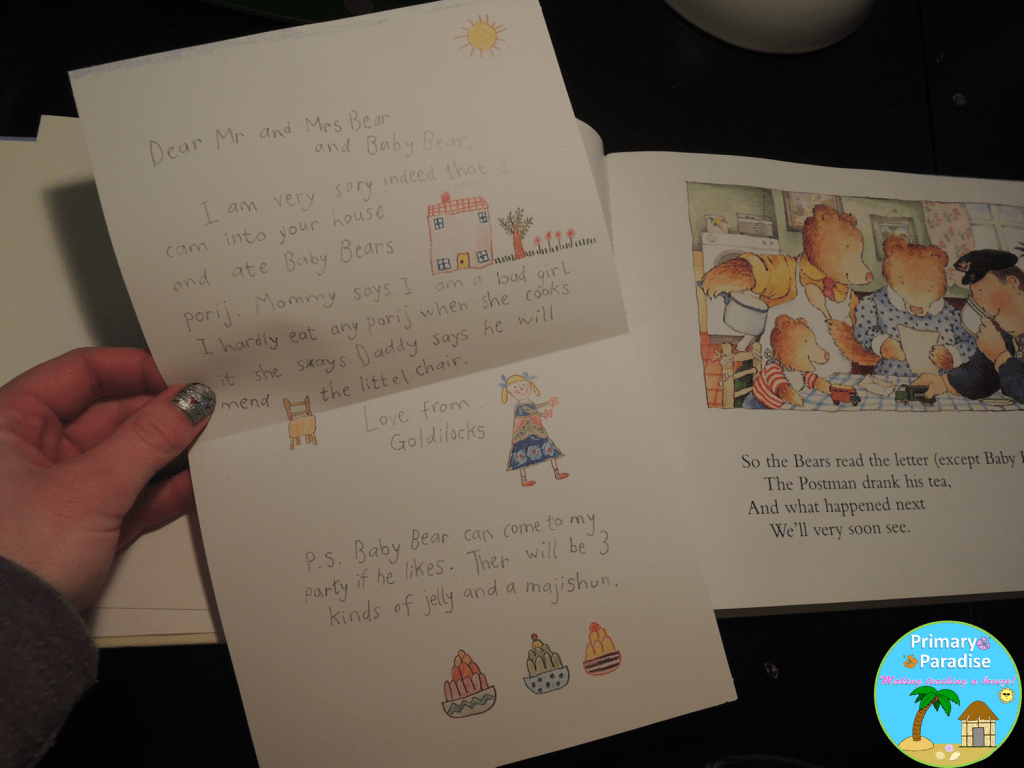 Dear Mr and Mrs Bear
and Baby Bear,
I am very sory indeed that I
cam into your house
and ate Baby Bears
porij. Mommy says I am a bad girl
I hardly eat any porij when she cooks
it she sxays. Daddy says he will
mend the littel chair.
Love from
Goldilocks
P.S. Baby Bear can come to my
party if he likes. Ther will be 3
kinds of jelly and a majishun.
So the Bears read the letter (except Baby
The Postman drank his tea,
And what happened next
We'll very soon see.
Primary
Paradise
Making teaching a breeze!